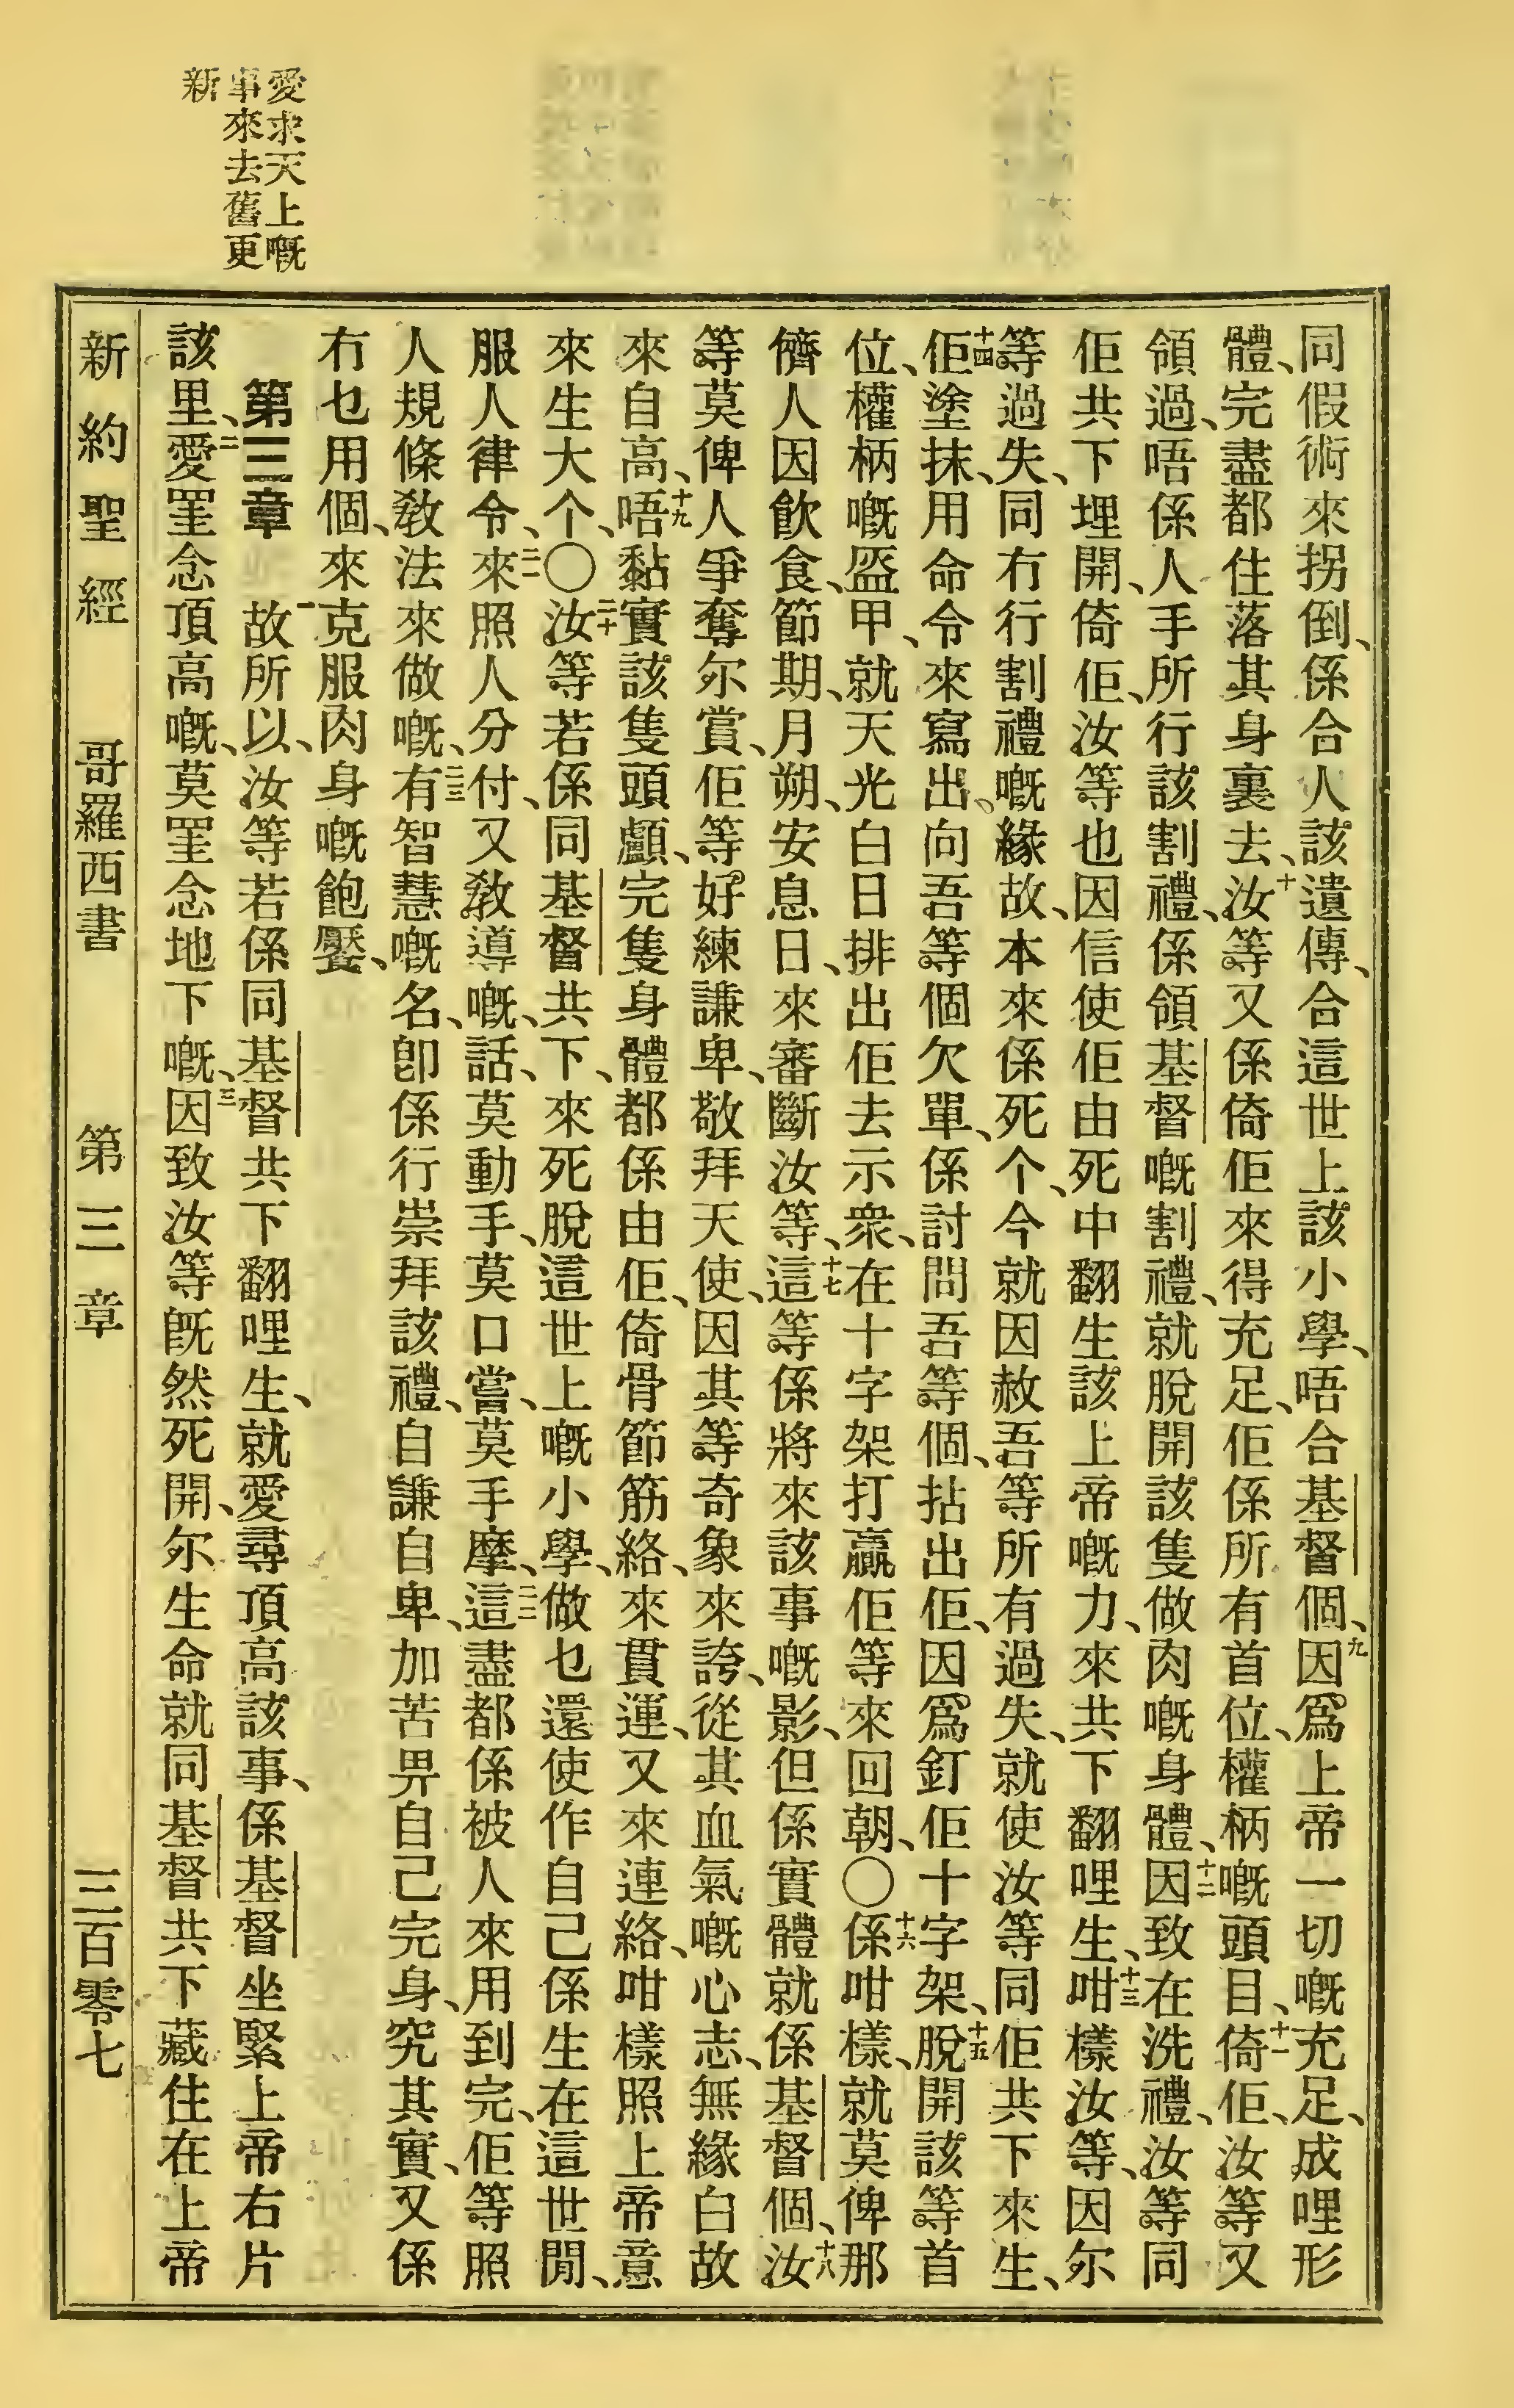 愛求天上嘅
事來去舊更
新
同假術來拐倒、係合人該遺傳、合這世上該小學、唔合基督個、九因爲上帝一切嘅充足、成哩形
體、完盡都住落其身裏去、十汝等又係倚佢來得充足、佢係所有首位、權柄嘅頭目、十一倚佢、汝等又
領過、唔係人手所行該割禮、係領基督嘅割禮、就脫開該隻做肉嘅身體、十二因致在洗禮、汝等同
佢共下埋開、倚佢、汝等也因信使佢由死中翻生該上帝嘅力、來共下翻哩生、十三咁樣汝等、因尔
等過失、同冇行割禮嘅緣故、本來係死个、今就因赦吾等所有過失、就使汝等同佢共下來生、
十四佢塗抹、用命令來寫出、向吾等個欠單、係討問吾等個、拈出佢、因爲釘佢十字架、十五脫開該等首
位、權柄嘅盔甲、就天光白日排出佢去示衆、在十字架打贏佢等來回朝、○十六係咁樣、就莫俾那
儕人因飲食、節期、月朔、安息日、來審斷汝等、十七這等係將來該事嘅影、但係實體就係基督個、十八汝
等莫俾人爭奪尔賞、佢等好練謙卑、敬拜天使、因其等奇象來誇、從其血氣嘅心志、無緣白故
來自高、十九唔黏實該隻頭顱、完隻身體都係由佢、倚骨節筋絡、來貫運、又來連絡、咁樣照上帝意
來生大个、○二十汝等若係同基督共下、來死脫這世上嘅小學、做乜還使作自己係生在這世閒、
服人律令、二一來照人分付、又敎導嘅、話、莫動手、莫口嘗、莫手摩、二二這盡都係被人來用到完、佢等照
人規條敎法來做嘅、二三有智慧嘅名、卽係行崇拜該禮、自謙自卑、加苦畀自己完身、究其實、又係
冇乜用個、來克服肉身嘅飽饜、
第三章　一故所以、汝等若係同基督共下翻哩生、就愛尋頂高該事、係基督坐緊上帝右片
該里、二愛罣念頂高嘅、莫罣念地下嘅、三因致汝等旣然死開、尔生命就同基督共下藏住在上帝
新約聖經　哥羅西書　第三章　三百零七